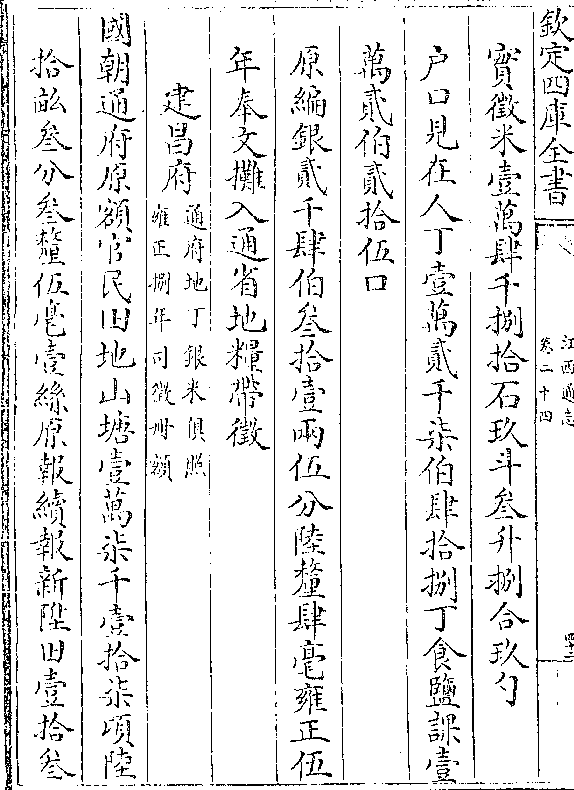 欽定四庫全書
江西通志
卷二十四
四十三
實徵米壹萬肆千捌拾石玖斗叁升捌合玖勺
戶口見在人丁壹萬貳千柒伯肆拾捌丁食鹽課壹
萬貳伯貳拾伍口
原編銀貳千肆伯叁拾壹兩伍分陸釐肆毫雍正伍
年奉文攤入通省地糧帶徵
建昌府
通府地丁銀米俱照
雍正捌年司徵冊額
國朝通府原額官民田地山塘壹萬柒千壹拾柒頃陸
拾畝叁分叁釐伍毫壹絲原報續報新陞田壹拾叁